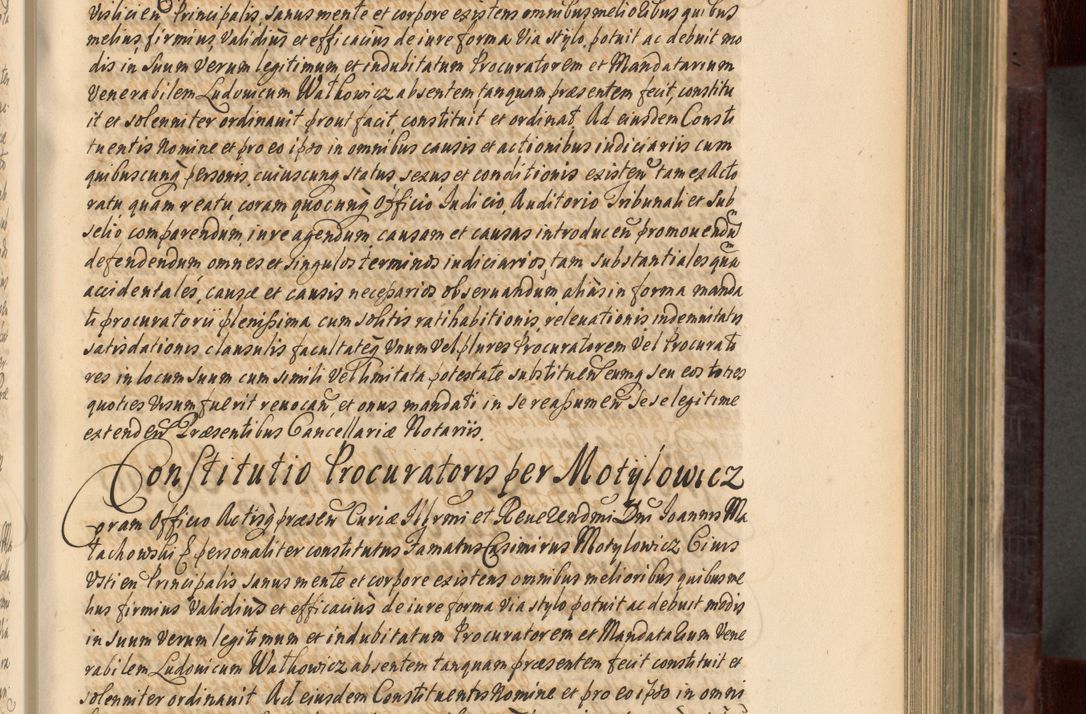 Visliciēn Principalis sanus mente et corpore existens omnibus melioribus quibus
melius firmius validius et efficacius de iure forma via stylo potuit ac debuit mo
dis in suum verum legitimum et indubitatum Procuratorem et Mandatarium
Venerabilem Ludovicum Walkowicz absentem tanquam præsentem fecit, constitu
it et solenniter ordinauit prout facit constituit et ordinat. Ad eiusdem Consti
tuentis Nomine et pro eo ipso in omnibus causis et actionibus iudiciariis cum
quibuscunq personis, cuiuscunq status sexus et conditionis existen tam ex Acto
ratu quam reatu, coram quocunq Officio Iudicio, Auditorio Tribunali et Sub
selio comparendum iure agendum causam et causas introducen promouendū
defendendum omnes et singulos terminos iudiciarios, tam substantiales quā
accidentales, causæ et causis necessarios obseruandum aliàs in forma manda
ti procuratorii plenissima cum solitis ratihabitionis releuationis indemnitatis
satisdationis clausulis facultateq Vnum vel plures Procuratorem vel Procurato
res in locum suum cum simili vel limitata potestate substituen eumq seu eos toties
quoties Visum fuerit reuocan, et onus mandati in se reassumen se se legitime
extenden Præsentibus Cancellariæ Notariis.
Constitutio Procuratoris per Motylowicz
Coram Officio Actisq præsen Curiæ Illrmi et Reuerendmi Dni Ioannis Ma
lachowski E personaliter constitutus Famatus Casimirus Motylowicz Ciuis
Vstien Principalis sanus mente et corpore existens omnibus melioribus quibus me
lius firmius validius et efficacius de iure forma via stylo potuit ac debuit modis
in suum verum legitimum et indubitatum Procuratorem et Mandatarium Vene
rabilem Ludouicum Walkowicz absentem tanquam præsentem fecit constituit et
solenniter ordinauit Ad eiusdem Constituentis Nomine et pro eo ipso in omni